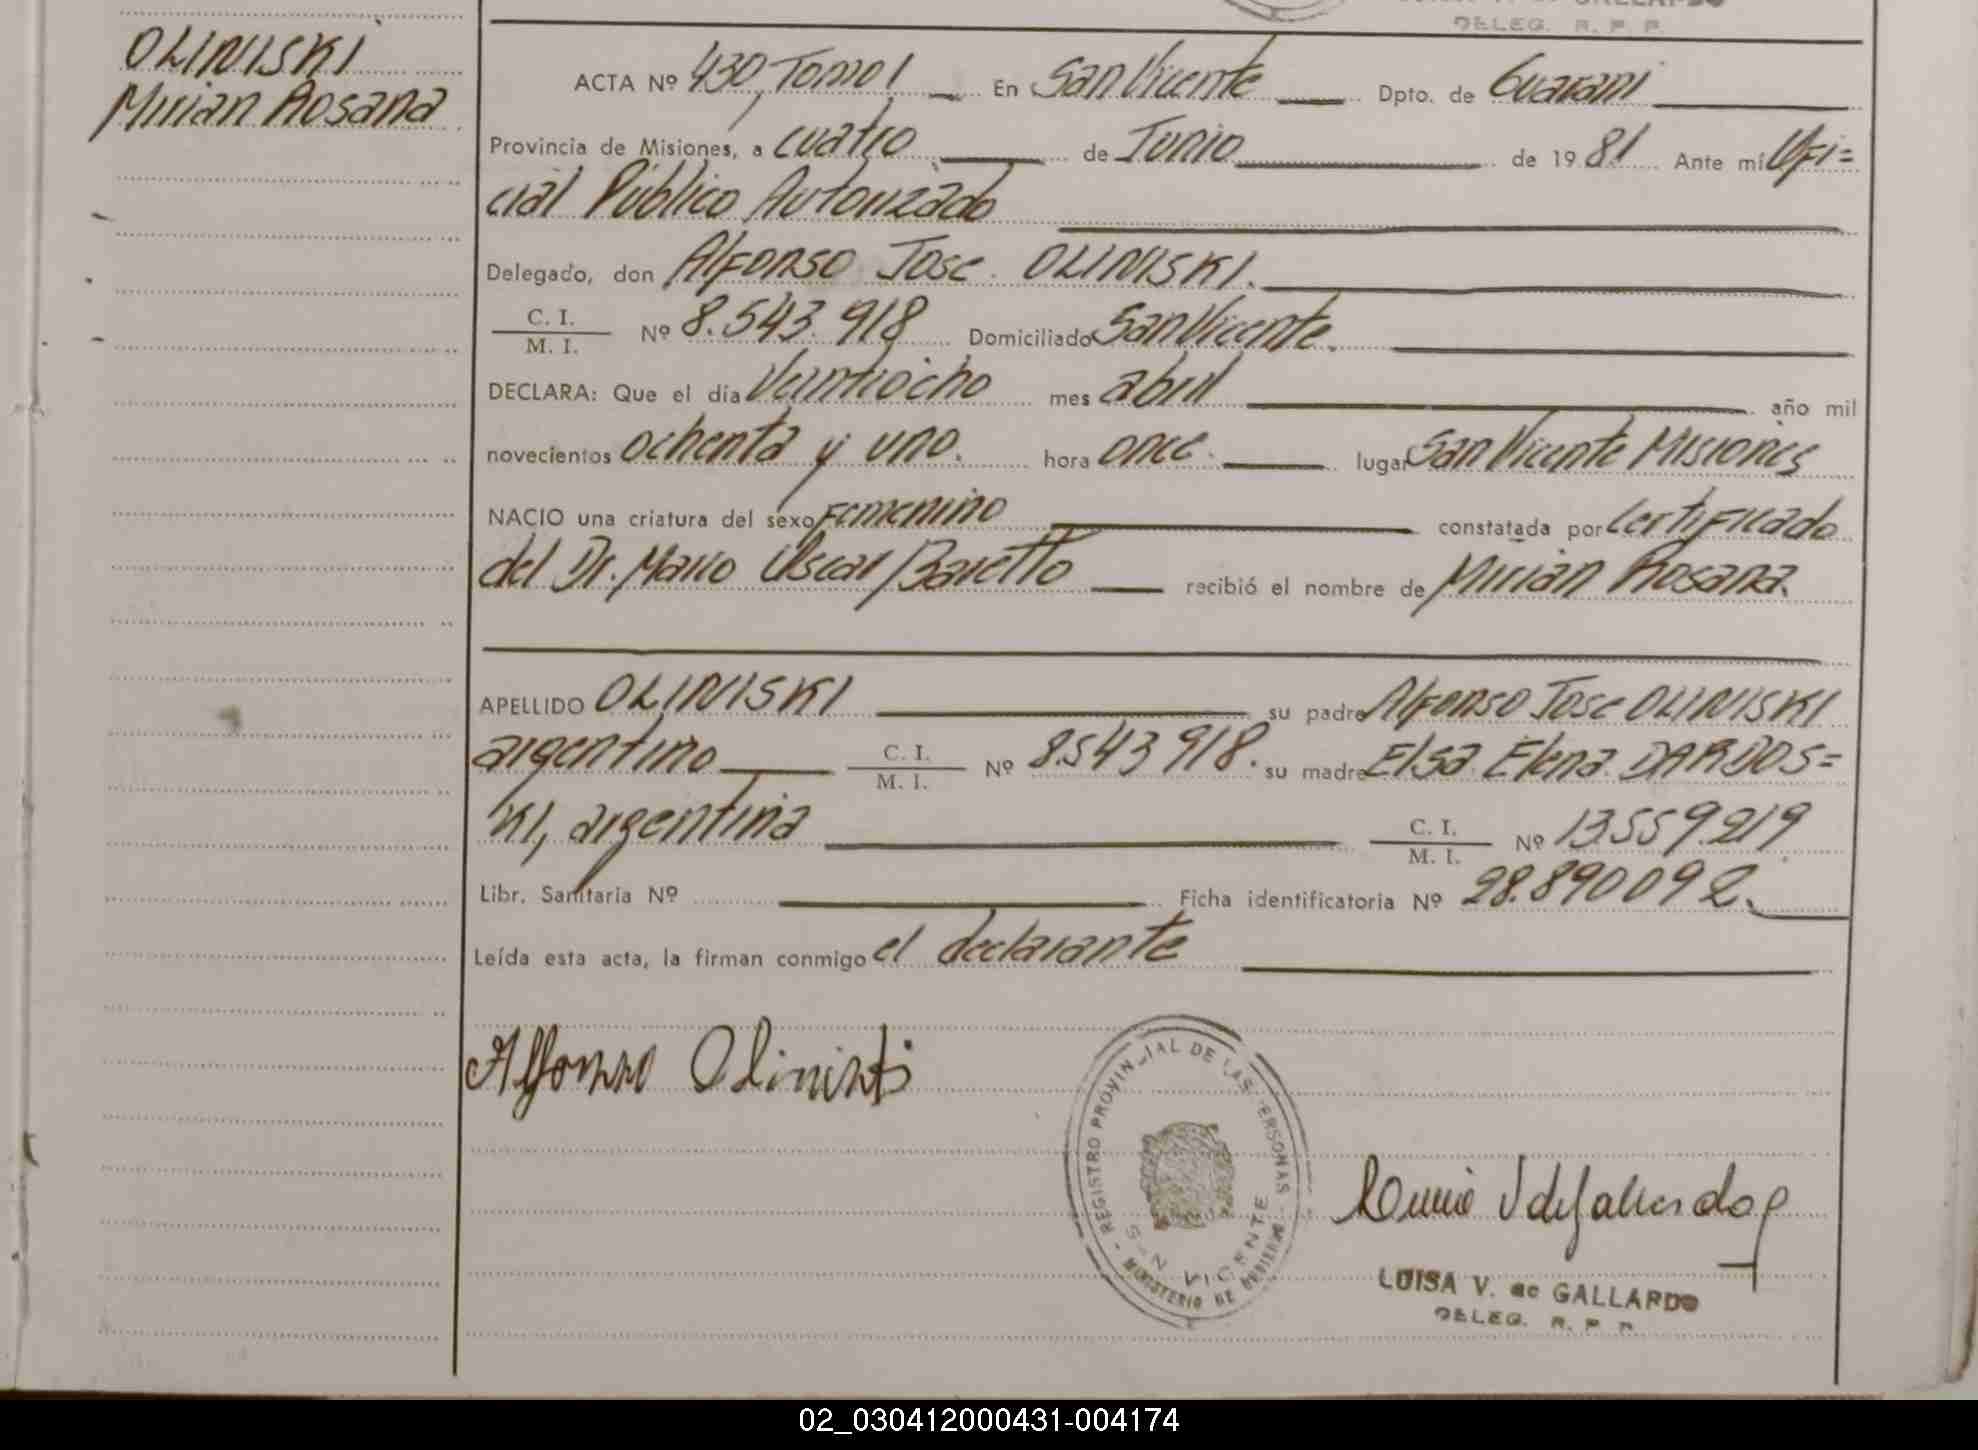 DELEG. R. P. P.
OLINISKI
Mirian Rosana
ACTA Nº 430, Tomo I En San Vicente Dpto. de Guarani
Provincia de Misiones, a cuatro de Junio de 1981 Ante mí Ofi=
cial Público Autorizado
Delegado, don Alfonso Jose OLINISKI.
C. I.
M. I. Nº 8.543.918 Domiciliado San Vicente.
DECLARA: Que el día Veintiocho mes abril año mil
novecientos ochenta y uno. hora once. lugar San Vicente Misiones
NACIO una criatura del sexo Femenino constatada por Certificado
del Dr. Mario Oscar Baretto recibió el nombre de Mirian Rosana.
APELLIDO OLINISKI su padre Alfonso Jose OLINISKI
argentino C. I.
M. I. Nº 8.543 918. su madre Elsa Elena DARDOS=
KI, argentina C. I.
M. I. Nº 13.559.219
Libr. Sanitaria Nº Ficha identificatoria Nº 28.890092.
Leída esta acta, la firman conmigo el declarante
Alfonso Oliniski
REGISTRO PROVINCIAL DE LAS PERSONAS
SAN VICENTE
MINISTERIO DE GOBIERNO
LUISA V. de GALLARDO
DELEG. R. P. P.
02_030412000431-004174